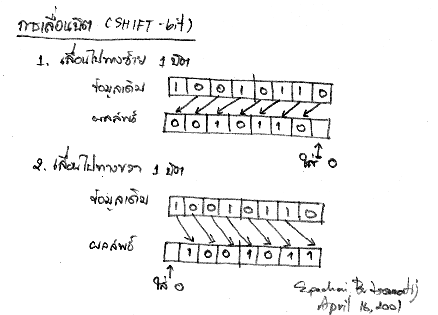 การเลื่อนบิต (SHIFT-bit)
1. เลื่อนไปทางซ้าย 1 บิต
ข้อมูลเดิม 1 0 0 1 0 1 1 0
ผลลัพธ์ 0 0 1 0 1 1 0
ใส่ 0
2. เลื่อนไปทางขวา 1 บิต
ข้อมูลเดิม 1 0 0 1 0 1 1 0
ผลลัพธ์ 1 0 0 1 0 1 1
ใส่ 0
April 16, 2001